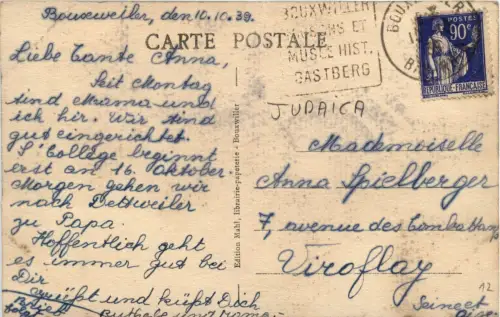 Bouxweiler, den 10.10.39.
Liebe Tante Anna,
Seit Montag
sind Mama und
ich hir. Wir sind
gut eingerichtet.
S'College beginnt
erst am 16. Oktober
Morgen gehen wir
nach Dettweiler
zu Papa.
Hoffentlich geht
es immer gut bei
Dir
grüßt und küßt Dich
Brief
folgt
und Mama
CARTE POSTALE
Edition Kahl, librairie-papeterie - Bouxwiller
BOUXWILLER
ET
MUSÉE HIST.
BASTBERG
BOUX
POSTES
90c
REPUBLIQUE-FRANÇAISE
JUDAICA
Mademoiselle
Anna Spielberger
7, avenue des Combattants
Viroflay
Seine et
Oise
12